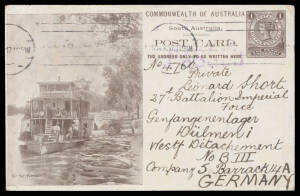 COMMONWEALTH OF AUSTRALIA
South Australia.
POST CARD.
THE ADDRESS ONLY TO BE WRITTEN HERE
No 4760
Private
Leonard Short
27th Battalion Imperial
Force
Genfangenenlager
Dülmen i
Westf Detachement
No B. III
Company 5, Barrack 14A
GERMANY